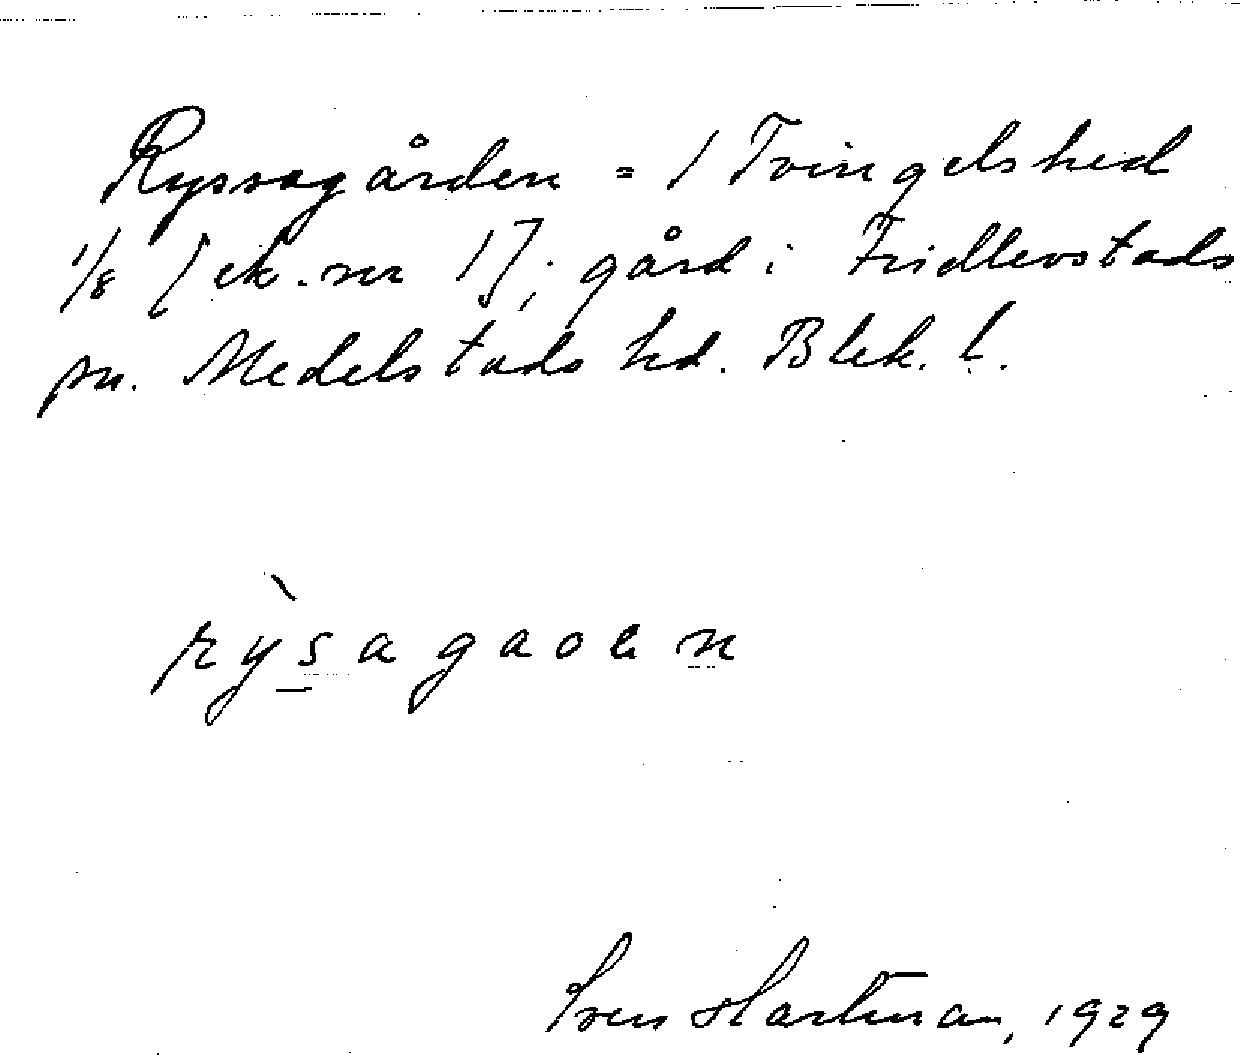 Ryssagården = / Tvingelshed
1/8 [ek. nr 1]; gård i Fridlevstads
sn. Medelstads hd. Blek. l.
rỳsagaoen
Sven Hartman, 1929